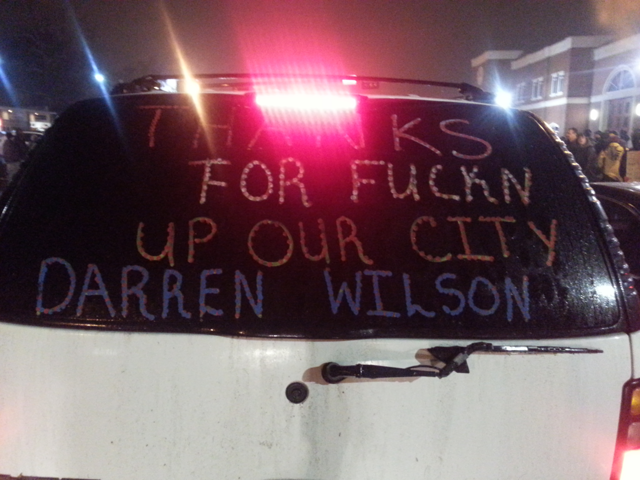 THANKS
FOR FUCKN
UP OUR CITY
DARREN WILSON